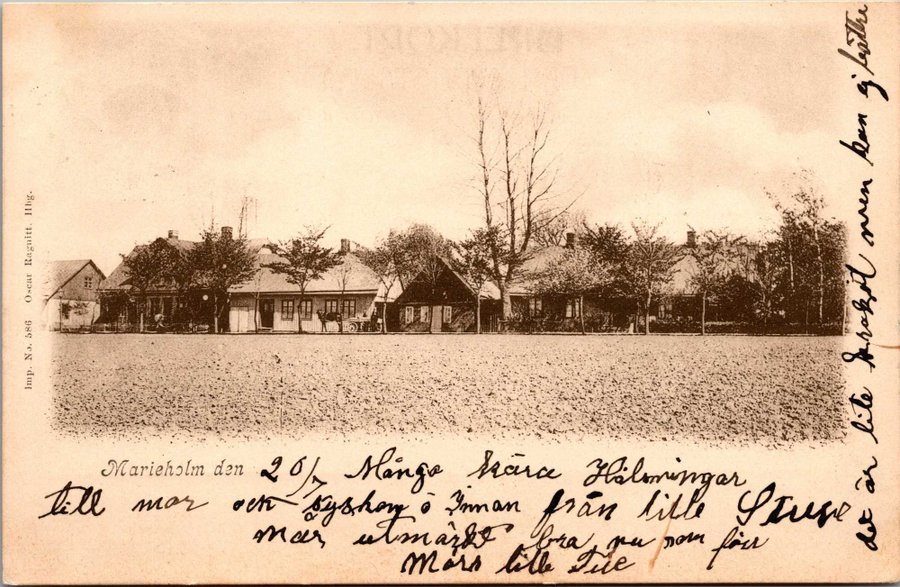 Marieholm den 20/7 Många kära Hälsningar
till mor och syskon ö Innan från lille Sture
mår utmärkt bra nu som förr
Mors lille Tue
det är lite krokot men kan ej bättre
Imp. No. 586 Oscar Ragnitt. Hbg.
BREFKORT